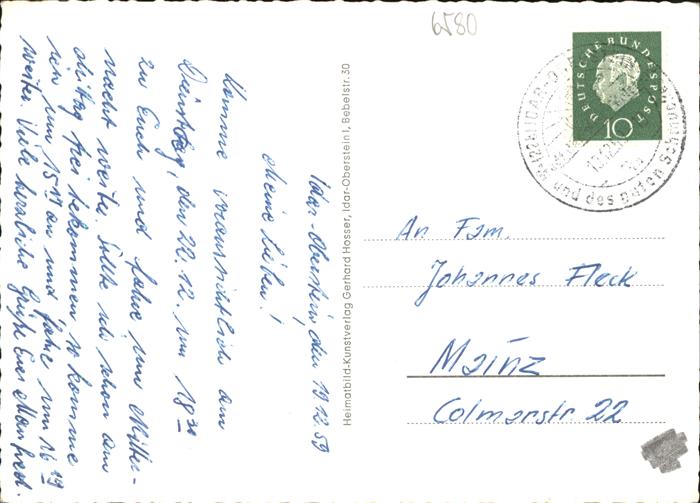 6580
DEUTSCHE BUNDESPOST
10
Idar-Oberstein, den 19.12.59
Meine Lieben!
Komme voraussichtlich am
Dienstag, den 22.12. um 18 30
zu Euch und fahre um Mitter-
nacht weiter. Sollte ich schon am
Mittag frei bekommen so komme
ich um 15 19 an und fahre um 16 29
weiter. Viele herzliche Grüße Euer Manfred.
Heimatbild-Kunstverlag Gerhard Hosser, Idar-Oberstein I, Bebelstr. 30
An Fam.
Johannes Fleck
Mainz
Colmarstr 22